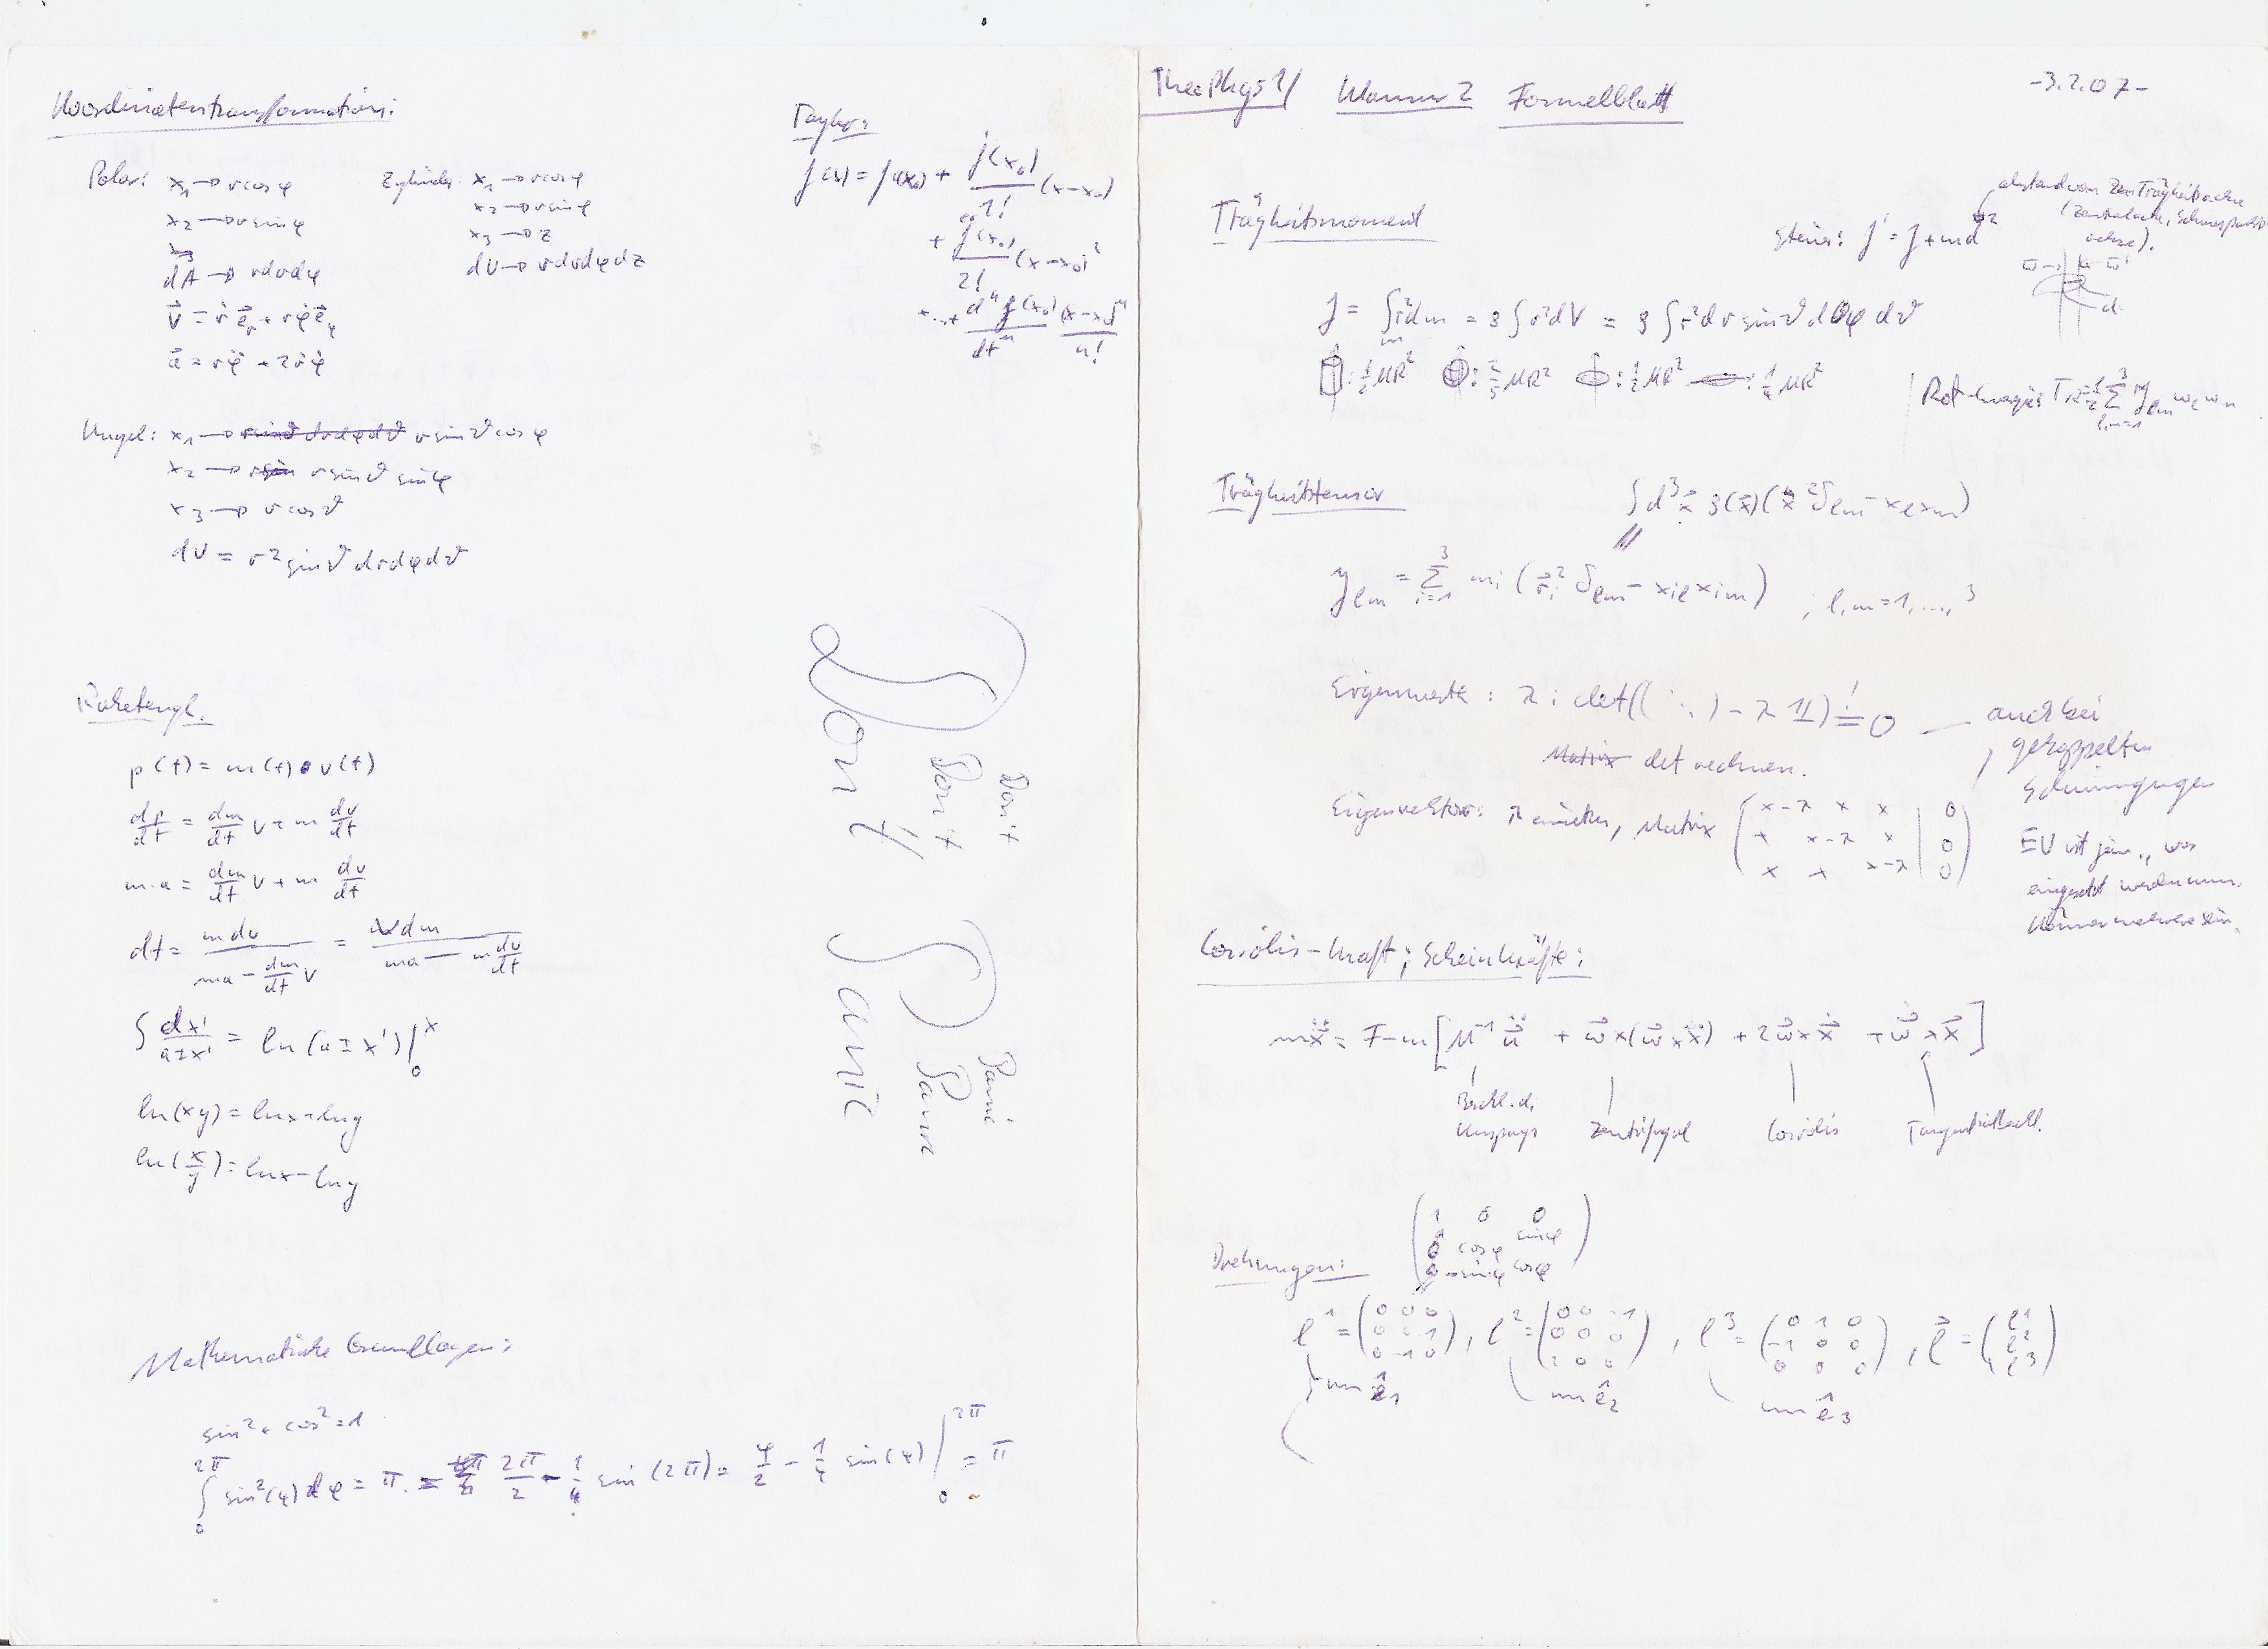 Koordinatentransformation:
Polar: x₁ → r cos φ
x₂ → r sin φ
x₃
dA → r dr dφ
v⃗ = ṙ e⃗ᵣ + r φ̇ e⃗φ
a⃗ = r φ̈ + 2 ṙ φ̇
Zylinder: x₁ → r cos φ
x₂ → r sin φ
x₃ → z
dV → r dr dφ dz
Kugel: x₁ → r sin ϑ cos φ
x₂ → r sin ϑ sin φ
x₃ → r cos ϑ
dV = r² sin ϑ dr dφ dϑ
Taylor:
f(x) = f(x₀) + f(x₀)/1! (x-x₀)
+ f(x₀)/2! (x-x₀)²
+...+ dⁿ f(x₀)/dtⁿ (x-x₀)ⁿ/n!
Raketengl.
p(t) = m(t) • v(t)
dp/dt = dm/dt v + m dv/dt
m·a = dm/dt v + m dv/dt
dt = m dv / (ma - dm/dt v) = v dm / (ma - m dv/dt)
∫ dx'/(a±x') = ln(a±x') |₀ˣ
ln(xy) = ln x + ln y
ln(x/y) = ln x - ln y
Don't Panic
Don't Panic
Don't Panic
Mathematische Grundlagen:
sin² + cos² = 1
∫₀²π sin²(φ) dφ = π = 2π/2 - 1/4 sin(2π) = φ/2 - 1/4 sin(φ) |₀²π = π
TheoPhys 1/ Klausur 2 Formelblatt
-3.2.07-
Trägheitsmoment
Steiner: J' = J + md²
Abstand von Trägheitsachse
(Zentralachse, Schwerpunkts-
achse).
ω→ ← ω'
d
J = ∫ₘ r² dm = ρ ∫ r² dV = ρ ∫ r² dr sin ϑ dφ dϑ
: ½ MR² : ⅖ MR² : ½ MR² : ¼ MR²
Rot-Energie: T_R = ½ Σ³ₗ,ₘ₌₁ Jₗₘ ωₗ ωₘ
Trägheitstensor
∫ d³x⃗ ρ(x⃗)(x⃗² δₗₘ - xₗ xₘ)
Jₗₘ = Σ³ᵢ₌₁ mᵢ (r⃗ᵢ² δₗₘ - xᵢₗ xᵢₘ) , l,m = 1,...,3
Eigenwerte: λ : det(( ⋱ ) - λ 𝟙) =! 0 — auch bei
gekoppelten
Schwingungen
Matrix det rechnen.
Eigenvektor: λ einsetzen, Matrix
( x-λ x x | 0 )
( x x-λ x | 0 )
( x x x-λ | 0 )
EV ist jew., was
eingesetzt werden muss.
Können mehrere sein.
Coriolis-Kraft; Scheinkräfte:
m ẍ⃗ = F - m [ M⁻¹ ü⃗ + ω⃗ × (ω⃗ × x⃗) + 2 ω⃗ × ẋ⃗ + ω̇⃗ × x⃗ ]
Beschl. d.
Ursprungs
Zentrifugal
Coriolis
Tangentialbeschl.
Drehungen:
( 1 0 0 )
( 0 cos φ sin φ )
( 0 -sin φ cos φ )
l¹ = (0 0 0; 0 0 1; 0 -1 0), l² = (0 0 -1; 0 0 0; 1 0 0), l³ = (0 1 0; -1 0 0; 0 0 0), l⃗ = (l¹; l²; l³)
um ê₁
um ê₂
um ê₃